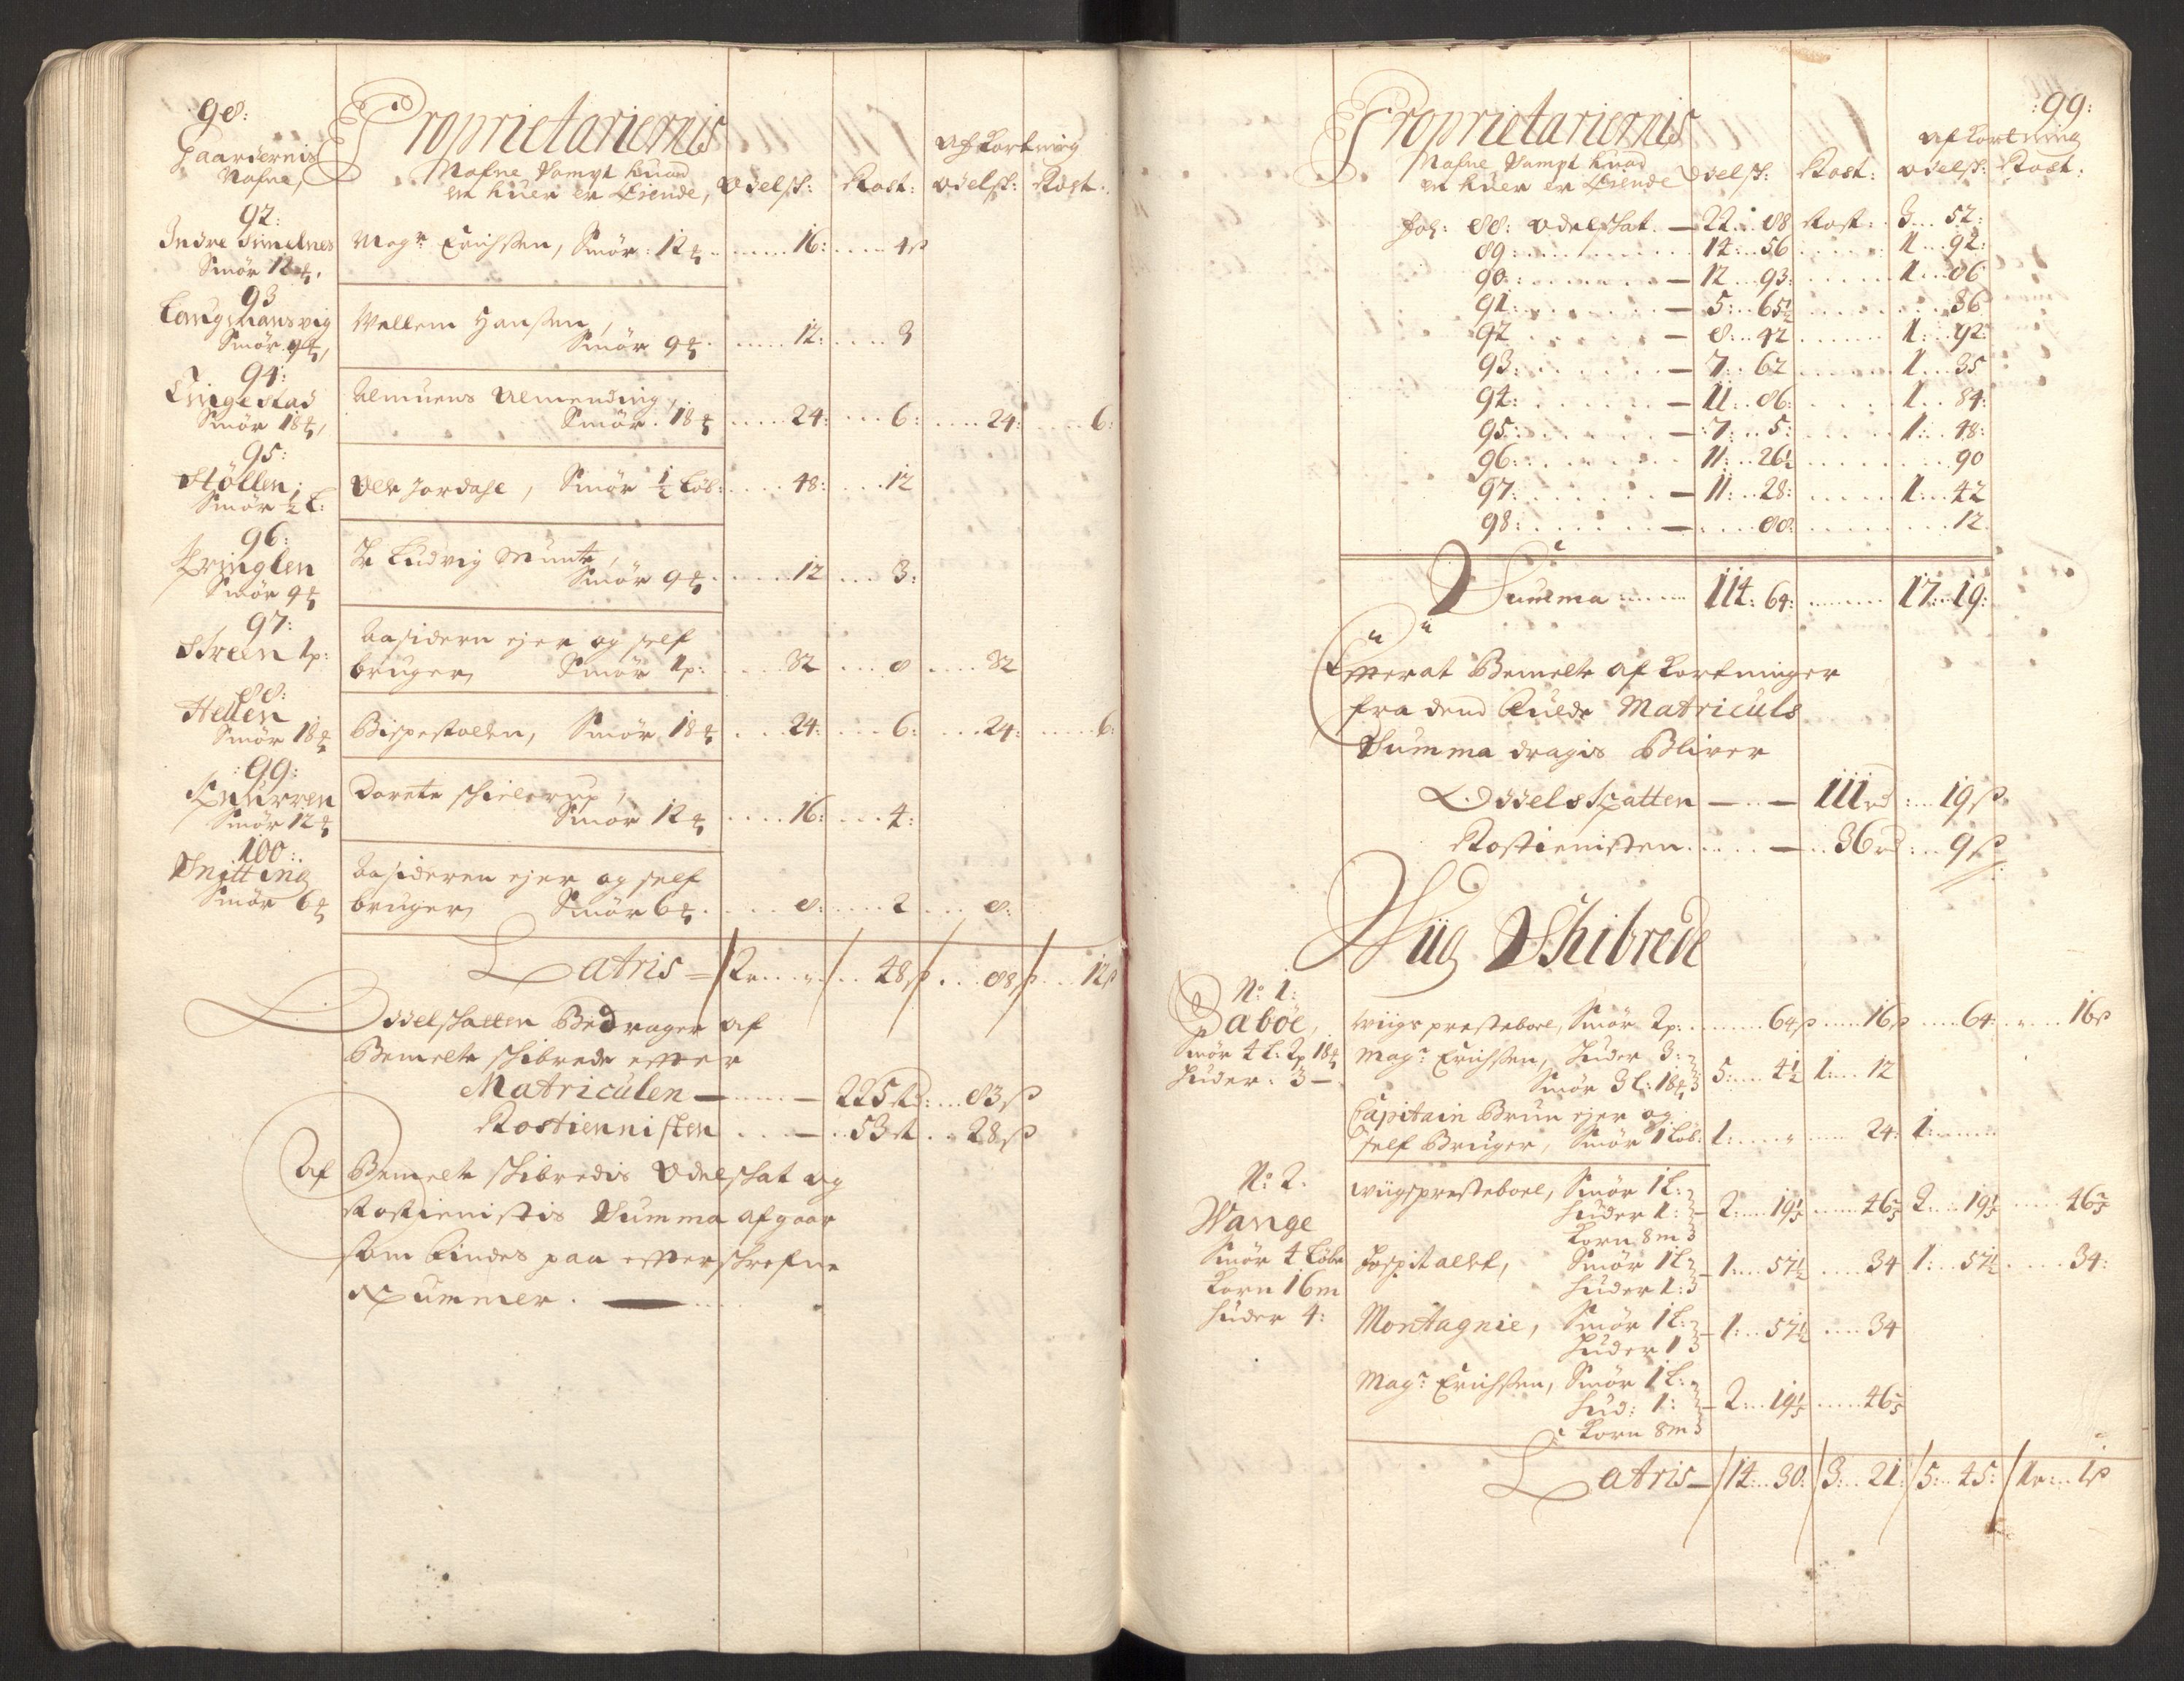 98:
Gaardernis
Nafne,
Proprietariernis
Nafne Sampt huad
en huer er Eiende,
Odelsk: Rost:
afkortning
Odelsk: Rost:
92:
Indre Simelnes
Smör 12
Magr Erichssen, Smör: 12 ...... 16: .... 4β
93
Langehansvig
Smör 9
Wellem Hanssen,
Smör 9 ..... 12: .... 3
94:
Tingestad
Smör 18
Almuens Almending,
Smör. 18 ..... 24: ... 6: .... 24: .... 6:
95:
Stöllen;
Smör ½ L:
Ole Jordahl, Smör ½ Löb: .... 48: ... 12
96:
Kringlen
Smör 9
Hr Ludvig Munte,
Smör 9 ..... 12 ... 3:
97:
Streen 1p:
Aasideren ejer og self
bruger, Smör 1p: .... 32 ... 8 .... 32
98:
Hellen
Smör 18
Bispestollen, Smör 18 .... 24: ... 6: ... 24: .... 6:
:99:
Knurren
Smör 12
Dorete Schielerup,
Smör 12 .... 16: ... 4:
100:
Snitting
Smör 6
Aasideren ejer og self
bruger, Smör 6 .... 8: .... 2 ... 8:
Latris = 2r .. " .. 48β ... 88β ... 12β
Odelskatten Bedrager af
Bemelte schibrede effter
Matriculen — 225 rd: ... 83β
Rostiennisten ... — .. 53 r .. 28β
Af Bemelte schibredis Odelskat og
Rostienistis Summa afgaar
som findes paa effterskrefne
Nummer.
:99:
Proprietariernis
Nafne Sampt huad
en huer er Eiende Odelsk: Rost:
afkortning
Odelsk: Rost:
fol: 88: Odelskat. — 22 .. 88 Rost: 3 ... 52:
89: ........ 14: .. 56 ..... 1 ... 92:
90: ....... — 12 .. 93: ..... 1 ... 86
91: ....... — 5: .. 65½ ....... 36
92 ....... — 8 .. 42 ..... 1: ... 92:
93: ...... — 7: .. 62 ..... 1 ... 35
94: ...... — 11 .. 86: ..... 1 .. 84:
95: ...... — :7: .. 5: ..... 1: .. 48:
96: ...... 11: .. 26½ ........ 90
97: ...... — 11: .. 28: ..... 1: .. 42
98: ...... — .... 88: ........ 12.
Summa ...... 114: 64: ....... 17: .. 19:
Efferat Bemelte afkortninger
fra dend fulde Matriculs
Summa dragis Bliver
Odelskatten — .. — 111 rd: ... 19β
Rostienisten ..... — .. 36 rd: .. 9β:
Wiig Schibrede
No: 1:
Daböe,
Smör 4 L: 2p 18
Huder: 3 —
Wiigs prestebol, Smör 2p: ....... 64β .... 16β ..... 64: .. " .... 16β
Magr: Erichssen, Huder 3:
Smör 3 L: 18 5: .... 4½ 1: ... 12
Capitain Brun ejer og
self Bruger, Smör 1 Löb: 1: .... " .... 24: 1: ......
No: 2.
Wange
Smör 4 Löbe
Korn 16m
Huder 4:
Wiigsprestebol, Smör 1 L:
Huder 1: — 2: .... 19⅕ ..... 46⅗ 2: ... 19⅕ ..... 46⅗
Korn 8m
Hospitalet, Smör 1 L:
Huder 1: — 1: ... 57½ .... 34 1: .. 57½ ..... 34:
Montagnie, Smör 1 L:
Huder 1 — 1: .. 57½ .... 34
Magr: Erichssen, Smör 1 L:
Hud: 1: — 2: .. 19⅕ ..... 46⅗
Korn 8m
Latris — 14: .. 30: 3: .. 21: 5: .. 45: 1r: .. 1β